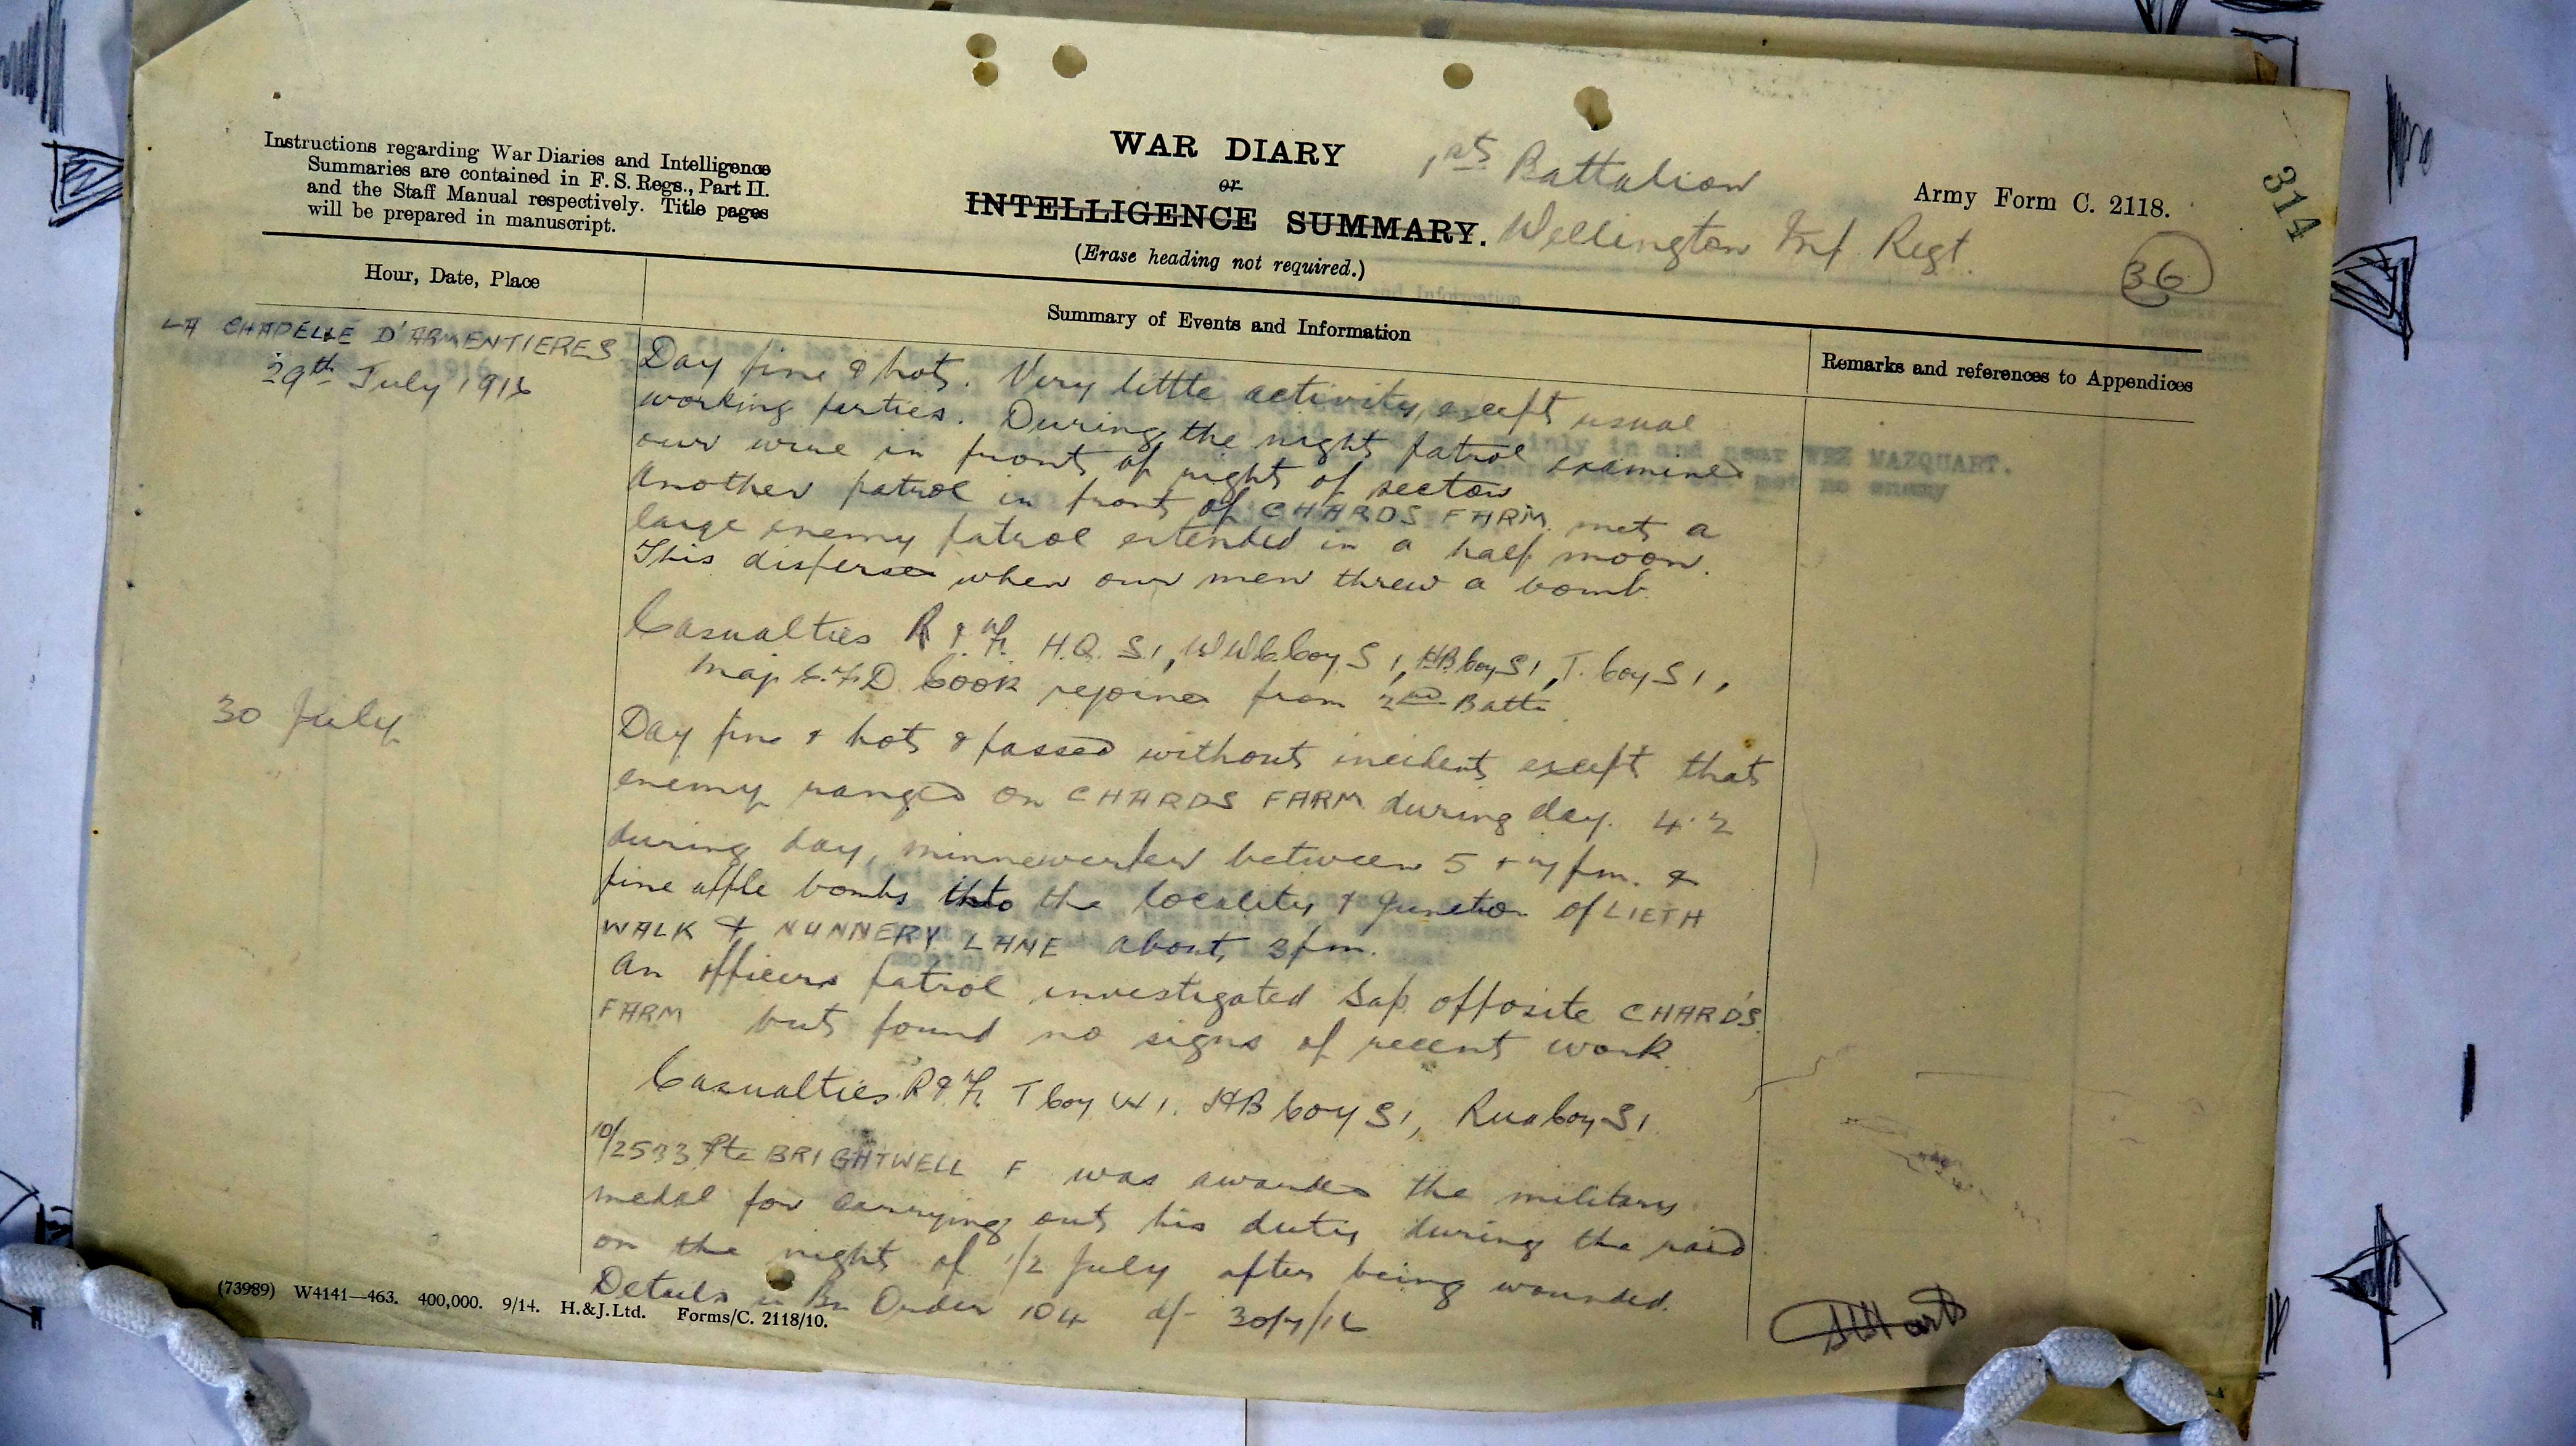 Instructions regarding War Diaries and Intelligence
Summaries are contained in F. S. Regs., Part II.
and the Staff Manual respectively. Title pages
will be prepared in manuscript.
WAR DIARY
or
INTELLIGENCE SUMMARY.
(Erase heading not required.)
1st Battalion
Wellington Inf Regt
Army Form C. 2118.
314
36
Hour, Date, Place
Summary of Events and Information
Remarks and references to Appendices
LA CHAPELLE D'ARMENTIERES
29th July 1916
Day fine & hot. Very little activity, except usual
working parties. During the night patrol examined
our wire in front of right of sector
Another patrol in front of CHARDS FARM met a
large enemy patrol extended in a half moon.
This dispersed when our men threw a bomb.
Casualties R & F. H.Q. S1, WWC Coy S1, HB Coy S1, T. Coy S1,
Maj E.F.D. Cook rejoined from 2nd Battn
30 July
Day fine & hot & passed without incident except that
enemy ranged on CHARDS FARM during day. 4.2
during day, minnewerfer between 5 + 7 pm. &
pine apple bombs into the locality & Junction of LIETH
WALK & NUNNERY LANE about 3 pm.
An officers patrol investigated Sap opposite CHARD'S
FARM but found no signs of recent work
Casualties R & F. T Coy W1. HB Coy S1, Rua Coy S1
10/2533 Pte BRIGHTWELL F was awarded the military
medal for carrying out his duty during the raid
on the night of 1/2 July after being wounded.
Details in Bn Order 104 d/- 30/7/16
(73989) W4141—463. 400,000. 9/14. H.&J.Ltd. Forms/C. 2118/10.